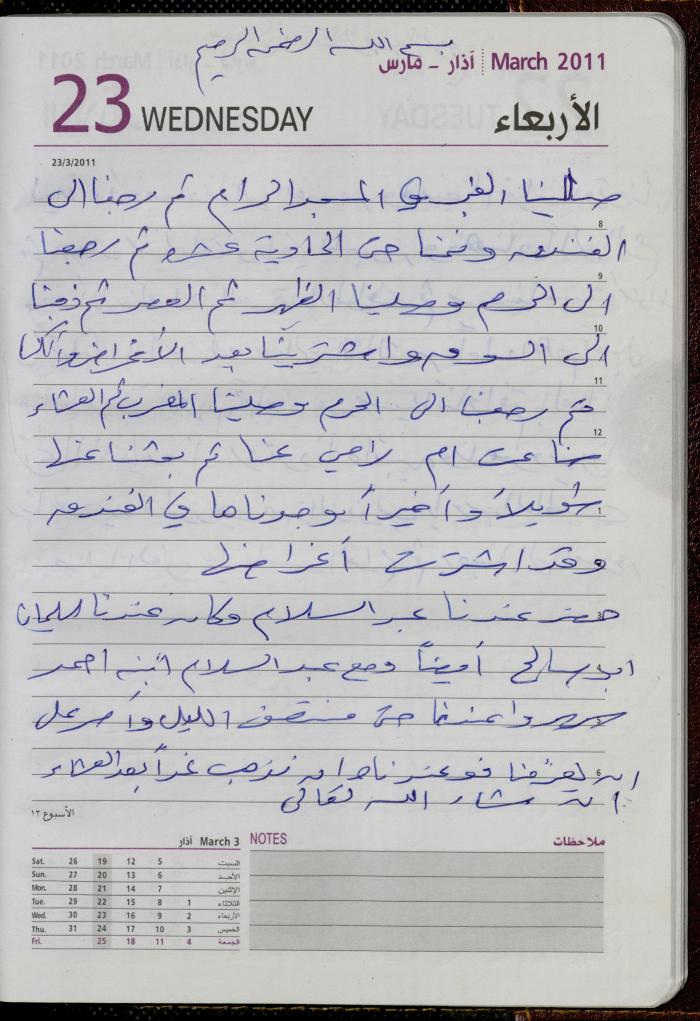 بسم الله الرحمن الرحيم
March 2011 آذار - مارس
23 WEDNESDAY الأربعاء
23/3/2011
صلينا الفجر في المسجد الحرام ثم رجعنا الى
8
الفندق ونمنا حتى الحادية عشر ثم رجعنا
9
الى الحرم وصلينا الظهر ثم العصر ثم ذهبنا
10
الى السوق واشترينا بعد الأغراض وأكلنا
11
ثم رجعنا الى الحرم وصلينا المغرب ثم العشاء
12
ضاعت ام رامي عنا ثم بحثنا عنها
طويلاً وأخيراً وجدناها في الفندق
وقد اشترت أغراضها
3
حضر عندنا عبد السلام وكان عندنا سليمان
ابو صالح أيضاً ومع عبد السلام ابنه احمد
عندنا حتى منتصف الليل وأصر على
6
ان فوعدناه ان نذهب غداً بعد العشاء
ان شاء الله تعالى
الأسبوع ١٢
March 3 آذار
NOTES ملاحظات
Sat. 26 19 12 5 السبت
Sun. 27 20 13 6 الأحد
Mon. 28 21 14 7 الإثنين
Tue. 29 22 15 8 1 الثلاثاء
Wed. 30 23 16 9 2 الأربعاء
Thu. 31 24 17 10 3 الخميس
Fri. 25 18 11 4 الجمعة